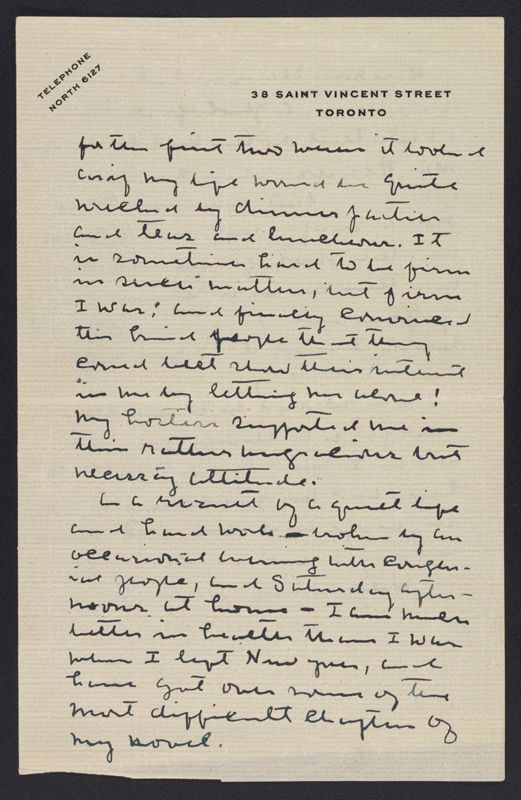 TELEPHONE
NORTH 6127
38 SAINT VINCENT STREET
TORONTO
for the first two weeks it looked
as if my life would be quite
wrecked by dinner parties
and teas and luncheons. It
is sometimes hard to be firm
in such matters, but firm
I was; and finally convinced
the kind people that they
could best show their interest
in me by letting me alone!
My hostess supported me in
this rather ungracious but
necessary attitude.
As a result of a quiet life
and hard work - broken by an
occasional evening with congen-
ial people, and Saturday after-
noons at home - I am much
better in health than I was
when I left New York, and
have got over some of the
most difficult chapters of
my novel.